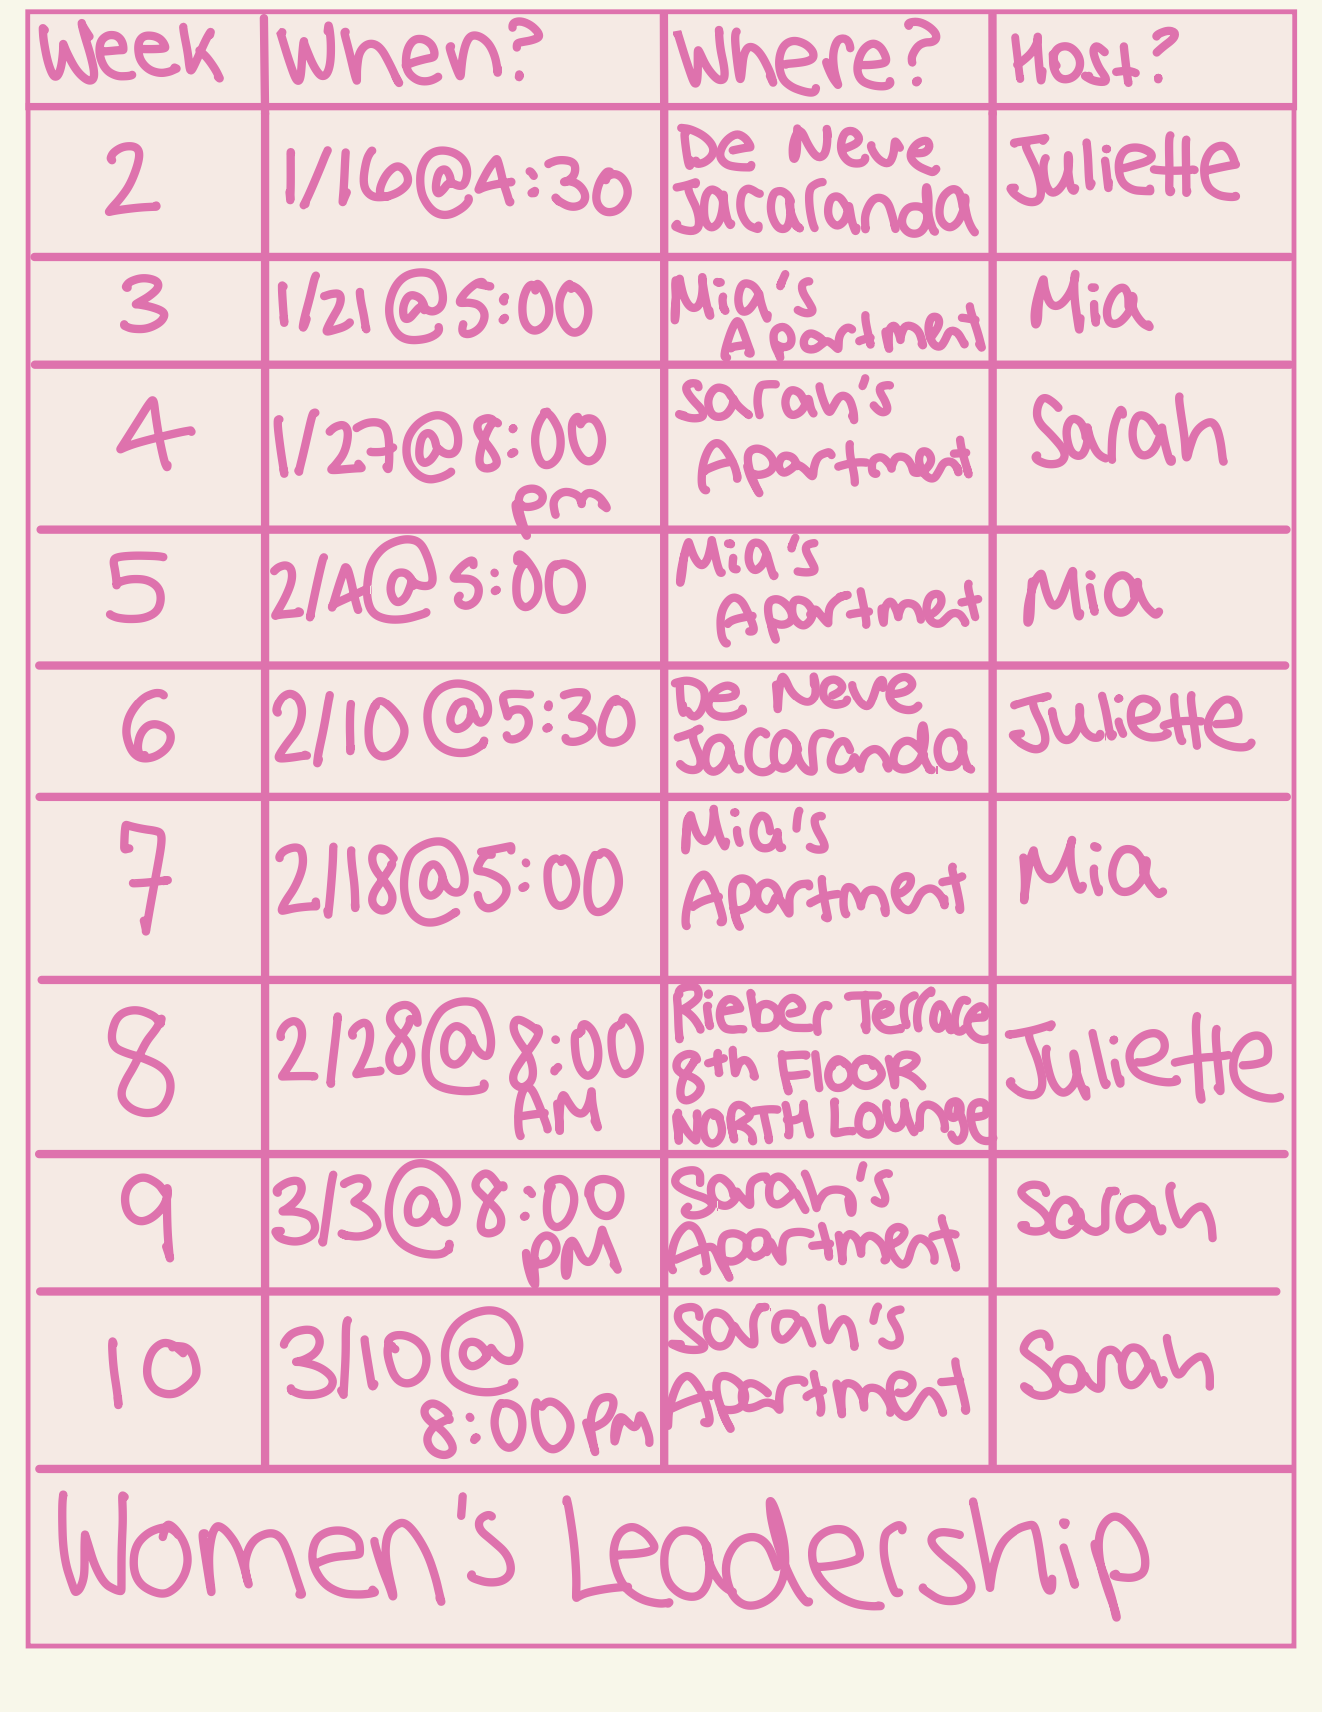 Week When? Where? Host?
2 1/16@4:30 De Neve Jacaranda Juliette
3 1/21@5:00 Mia's Apartment Mia
4 1/27@8:00 pm Sarah's Apartment Sarah
5 2/4@5:00 Mia's Apartment Mia
6 2/10@5:30 De Neve Jacaranda Juliette
7 2/18@5:00 Mia's Apartment Mia
8 2/28@8:00 AM Rieber Terrace 8th FlOOR NORTH Lounge Juliette
9 3/3@8:00 PM Sarah's Apartment Sarah
10 3/10@ 8:00PM Sarah's Apartment Sarah
Women's Leadership